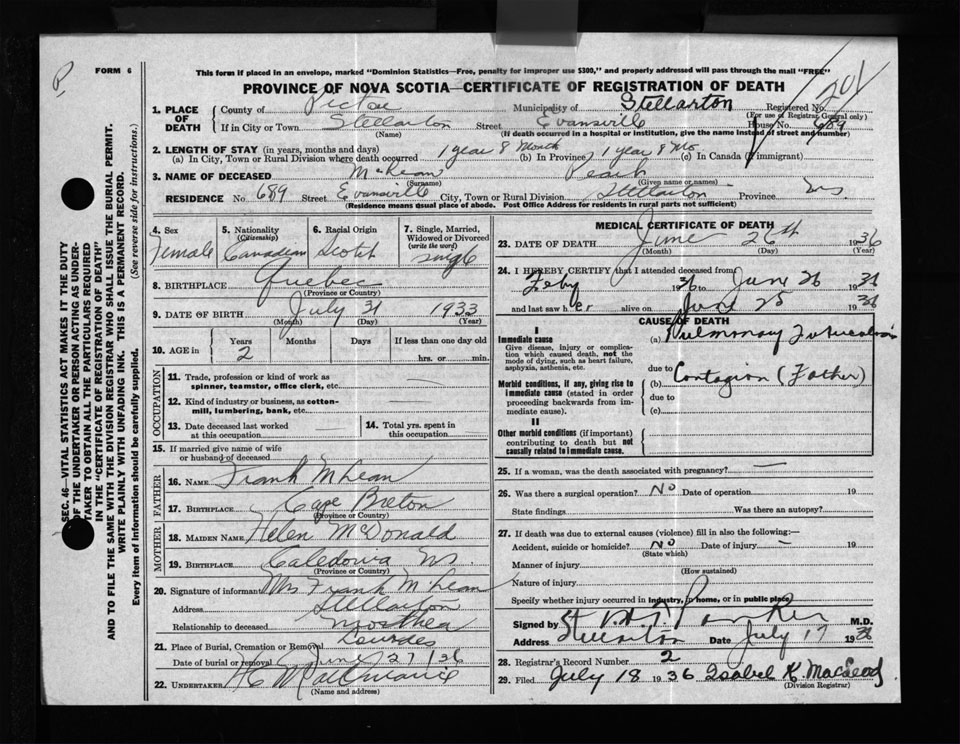 FORM 6
This form if placed in an envelope, marked "Dominion Statistics—Free, penalty for improper use $300," and properly addressed will pass through the mail "FREE"
PROVINCE OF NOVA SCOTIA—CERTIFICATE OF REGISTRATION OF DEATH
1. PLACE OF DEATH
County of Pictou Municipality of Stellarton Registered No.
(For use of Registrar General only)
If in City or Town Stellarton Street Evansville House No. 689
(Name) (If death occurred in a hospital or institution, give the name instead of street and number)
2. LENGTH OF STAY (in years, months and days)
(a) In City, Town or Rural Division where death occurred 1 year 8 Month (b) In Province 1 year 8 Mo (c) In Canada (if immigrant)
3. NAME OF DECEASED McLean Pearl
(Surname) (Given name or names)
RESIDENCE No. 689 Street Evansville City, Town or Rural Division Stellarton Province NS
(Residence means usual place of abode. Post Office Address for residents in rural parts not sufficient)
4. Sex
Female
5. Nationality
(Citizenship)
Canadian
6. Racial Origin
Scotch
7. Single, Married, Widowed or Divorced
(write the word)
single
8. BIRTHPLACE Quebec
(Province or Country)
9. DATE OF BIRTH July 31 1933
(Month) (Day) (Year)
10. AGE in Years Months Days If less than one day old
2 hrs. or min.
OCCUPATION
11. Trade, profession or kind of work as spinner, teamster, office clerk, etc.
12. Kind of industry or business, as cotton-mill, lumbering, bank, etc.
13. Date deceased last worked at this occupation
14. Total yrs. spent in this occupation
15. If married give name of wife or husband of deceased
FATHER
16. NAME Frank McLean
17. BIRTHPLACE Cape Breton
(Province or Country)
MOTHER
18. MAIDEN NAME Helen McDonald
19. BIRTHPLACE Caledonia NS
(Province or Country)
20. Signature of informant Mrs Frank McLean
Address Stellarton
Relationship to deceased Mother
21. Place of Burial, Cremation or Removal Lourdes
Date of burial or removal June 27/36
22. UNDERTAKER
(Name and address)
MEDICAL CERTIFICATE OF DEATH
23. DATE OF DEATH June 26th 1936
(Month) (Day) (Year)
24. I HEREBY CERTIFY that I attended deceased from
Feby 1936 to June 26 1936
and last saw her alive on June 25 1936
CAUSE OF DEATH
I
Immediate cause
Give disease, injury or complication which caused death, not the mode of dying, such as heart failure, asphyxia, asthenia, etc.
(a) Pulmonary Tuberculosis
due to
Morbid conditions, if any, giving rise to immediate cause (stated in order proceeding backwards from immediate cause).
(b) Contagion (Father)
due to
(c)
II
Other morbid conditions (if important) contributing to death but not causally related to immediate cause.
25. If a woman, was the death associated with pregnancy?
26. Was there a surgical operation? No Date of operation 19
State findings Was there an autopsy?
27. If death was due to external causes (violence) fill in also the following:—
Accident, suicide or homicide? No Date of injury 19
(State which)
Manner of injury
(How sustained)
Nature of injury
Specify whether injury occurred in industry, in home, or in public place
Signed by M.D.
Address Stellarton Date July 17 1936
28. Registrar's Record Number 2
29. Filed July 18 1936 Isabel K. MacLeod
(Division Registrar)
SEC. 46—VITAL STATISTICS ACT MAKES IT THE DUTY
OF THE UNDERTAKER OR PERSON ACTING AS UNDER-
TAKER TO OBTAIN ALL THE PARTICULARS REQUIRED
IN THE "CERTIFICATE OF REGISTRATION OF DEATH"
AND TO FILE THE SAME WITH THE DIVISION REGISTRAR WHO SHALL ISSUE THE BURIAL PERMIT.
WRITE PLAINLY WITH UNFADING INK. THIS IS A PERMANENT RECORD.
Every item of information should be carefully supplied. (See reverse side for instructions.)